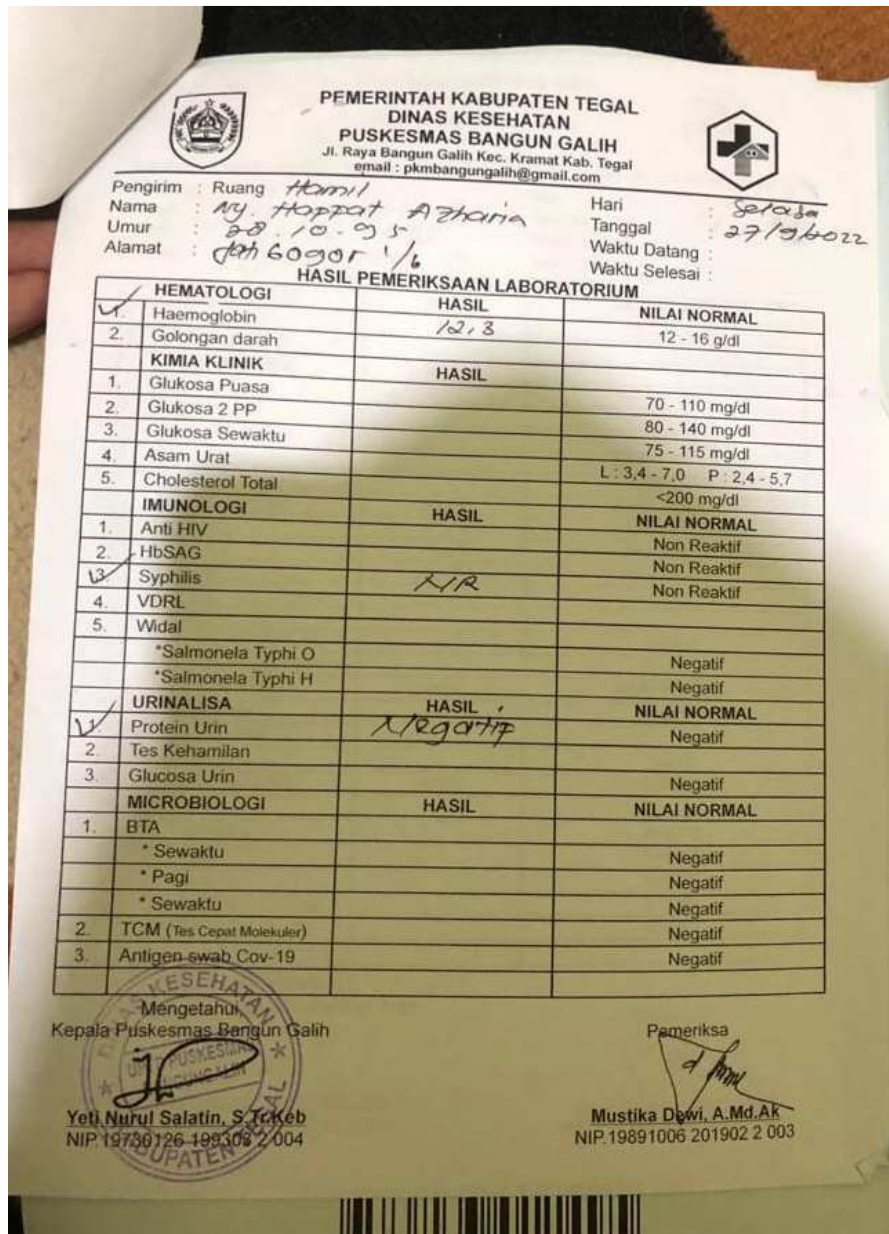 PEMERINTAH KABUPATEN TEGAL
DINAS KESEHATAN
PUSKESMAS BANGUN GALIH
Jl. Raya Bangun Galih Kec. Kramat Kab. Tegal
email : pkmbangungalih@gmail.com
Pengirim : Ruang Hamil
Nama : Ny. Happat Azharia
Umur : 28.10.95
Alamat : 1/6
Hari : Selasa
Tanggal : 27/9/2022
Waktu Datang :
Waktu Selesai :
HASIL PEMERIKSAAN LABORATORIUM
HEMATOLOGI HASIL NILAI NORMAL
1. Haemoglobin 12,3 12 - 16 g/dl
2. Golongan darah
KIMIA KLINIK HASIL
1. Glukosa Puasa 70 - 110 mg/dl
2. Glukosa 2 PP 80 - 140 mg/dl
3. Glukosa Sewaktu 75 - 115 mg/dl
4. Asam Urat L : 3,4 - 7,0 P : 2,4 - 5,7
5. Cholesterol Total <200 mg/dl
IMUNOLOGI HASIL NILAI NORMAL
1. Anti HIV Non Reaktif
2. HbSAG Non Reaktif
3. Syphilis NR Non Reaktif
4. VDRL
5. Widal
*Salmonela Typhi O Negatif
*Salmonela Typhi H Negatif
URINALISA HASIL NILAI NORMAL
1. Protein Urin Negatif Negatif
2. Tes Kehamilan
3. Glucosa Urin Negatif
MICROBIOLOGI HASIL NILAI NORMAL
1. BTA
* Sewaktu Negatif
* Pagi Negatif
* Sewaktu Negatif
2. TCM (Tes Cepat Molekuler) Negatif
3. Antigen swab Cov-19 Negatif
Mengetahui,
Kepala Puskesmas Bangun Galih
Yeti Nurul Salatin, S.Tr.Keb
NIP.19730126 199303 2 004
Pemeriksa
Mustika Dewi, A.Md.Ak
NIP.19891006 201902 2 003